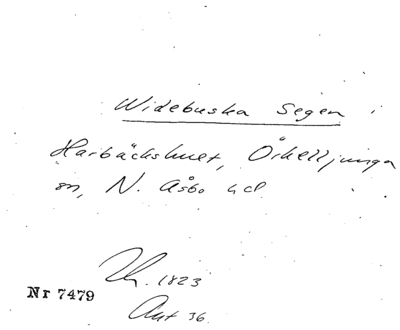 Widebuska Segen i
Harbäckshult, Örkelljunga
sn, N. Åsbo hd
Th. 1823
Nr 7479
Ant 36.